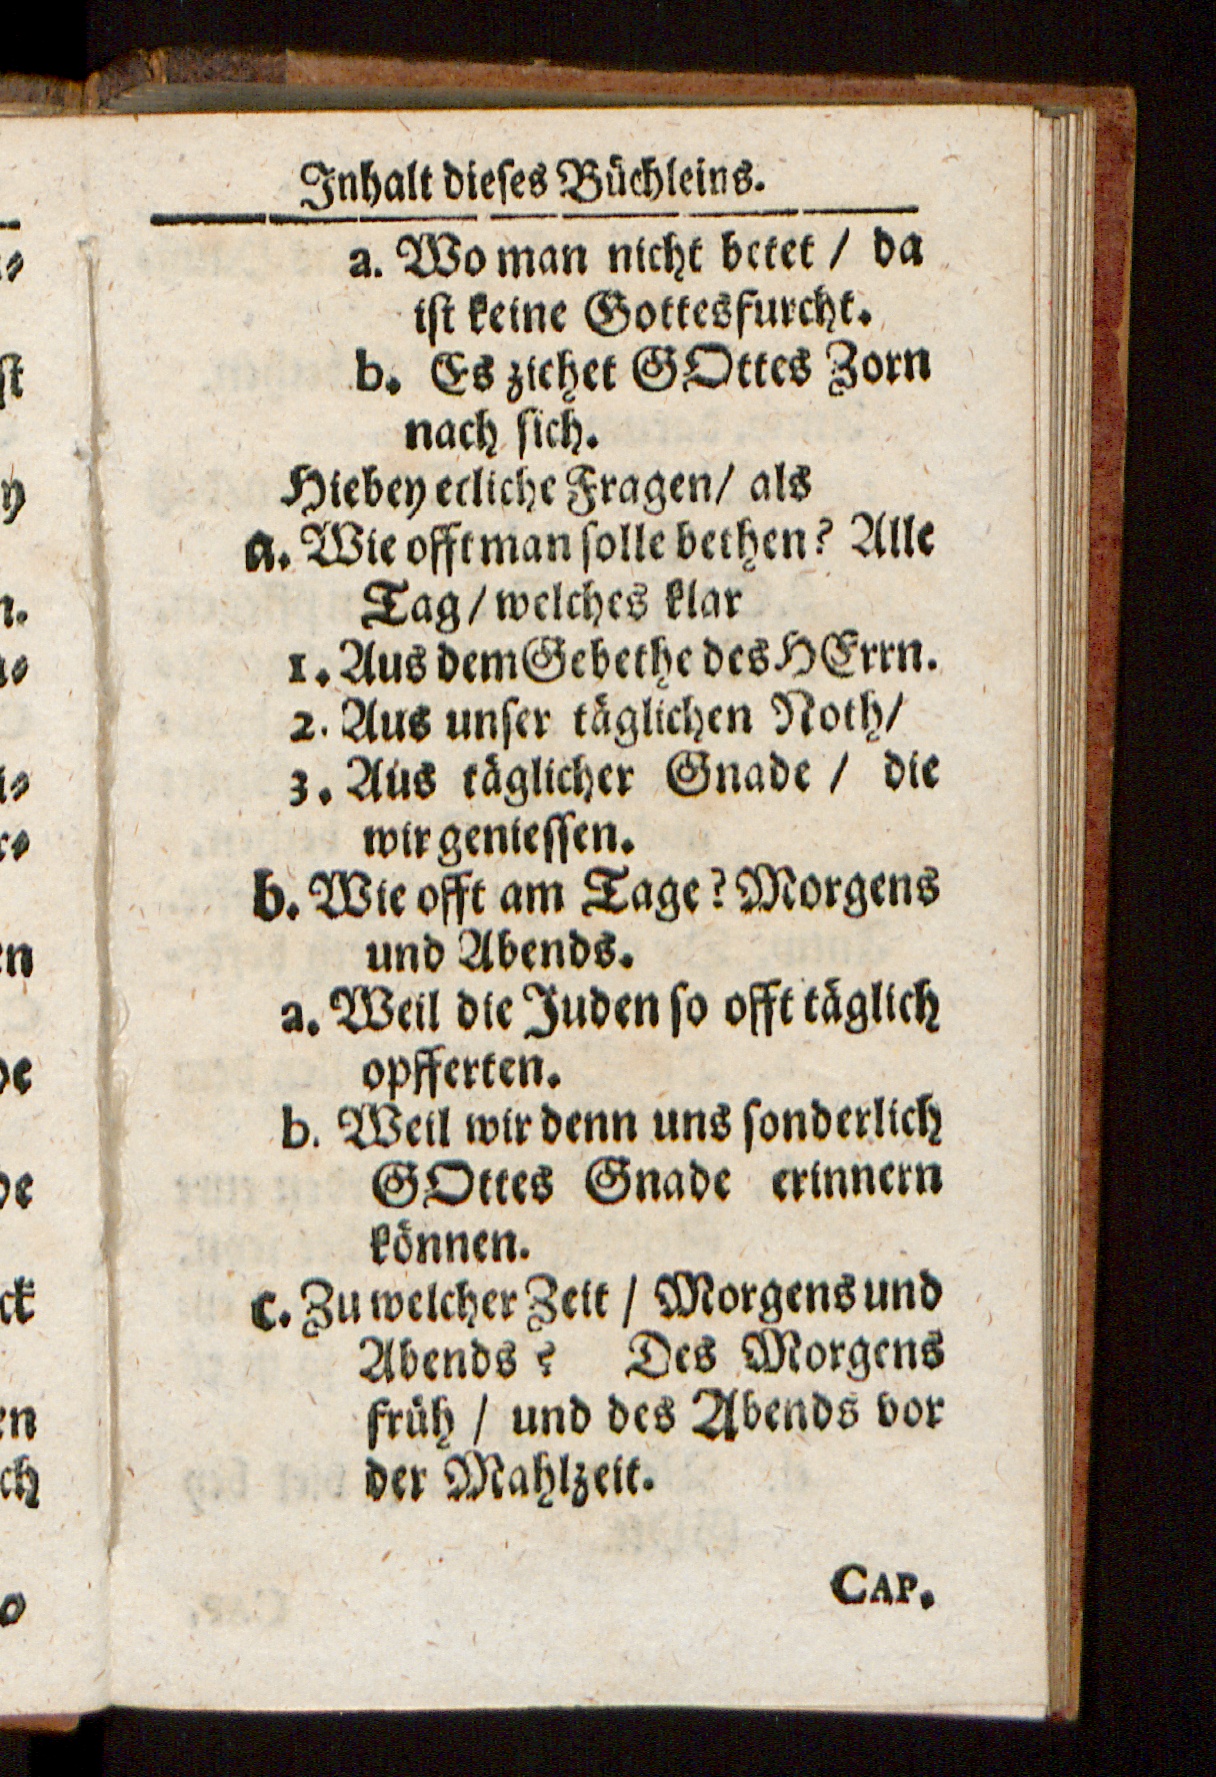 Inhalt dieses Büchleins.
a. Wo man nicht betet / da
ist keine Gottesfurcht.
b. Es ziehet GOttes Zorn
nach sich.
Hiebey etliche Fragen / als
a. Wie offt man solle bethen? Alle
Tag / welches klar
1. Aus dem Gebethe des HErrn.
2. Aus unser täglichen Noth /
3. Aus täglicher Gnade / die
wir geniessen.
b. Wie offt am Tage? Morgens
und Abends.
a. Weil die Juden so offt täglich
opfferten.
b. Weil wir denn uns sonderlich
GOttes Gnade erinnern
können.
c. Zu welcher Zeit / Morgens und
Abends? Des Morgens
früh / und des Abends vor
der Mahlzeit.
CAP.